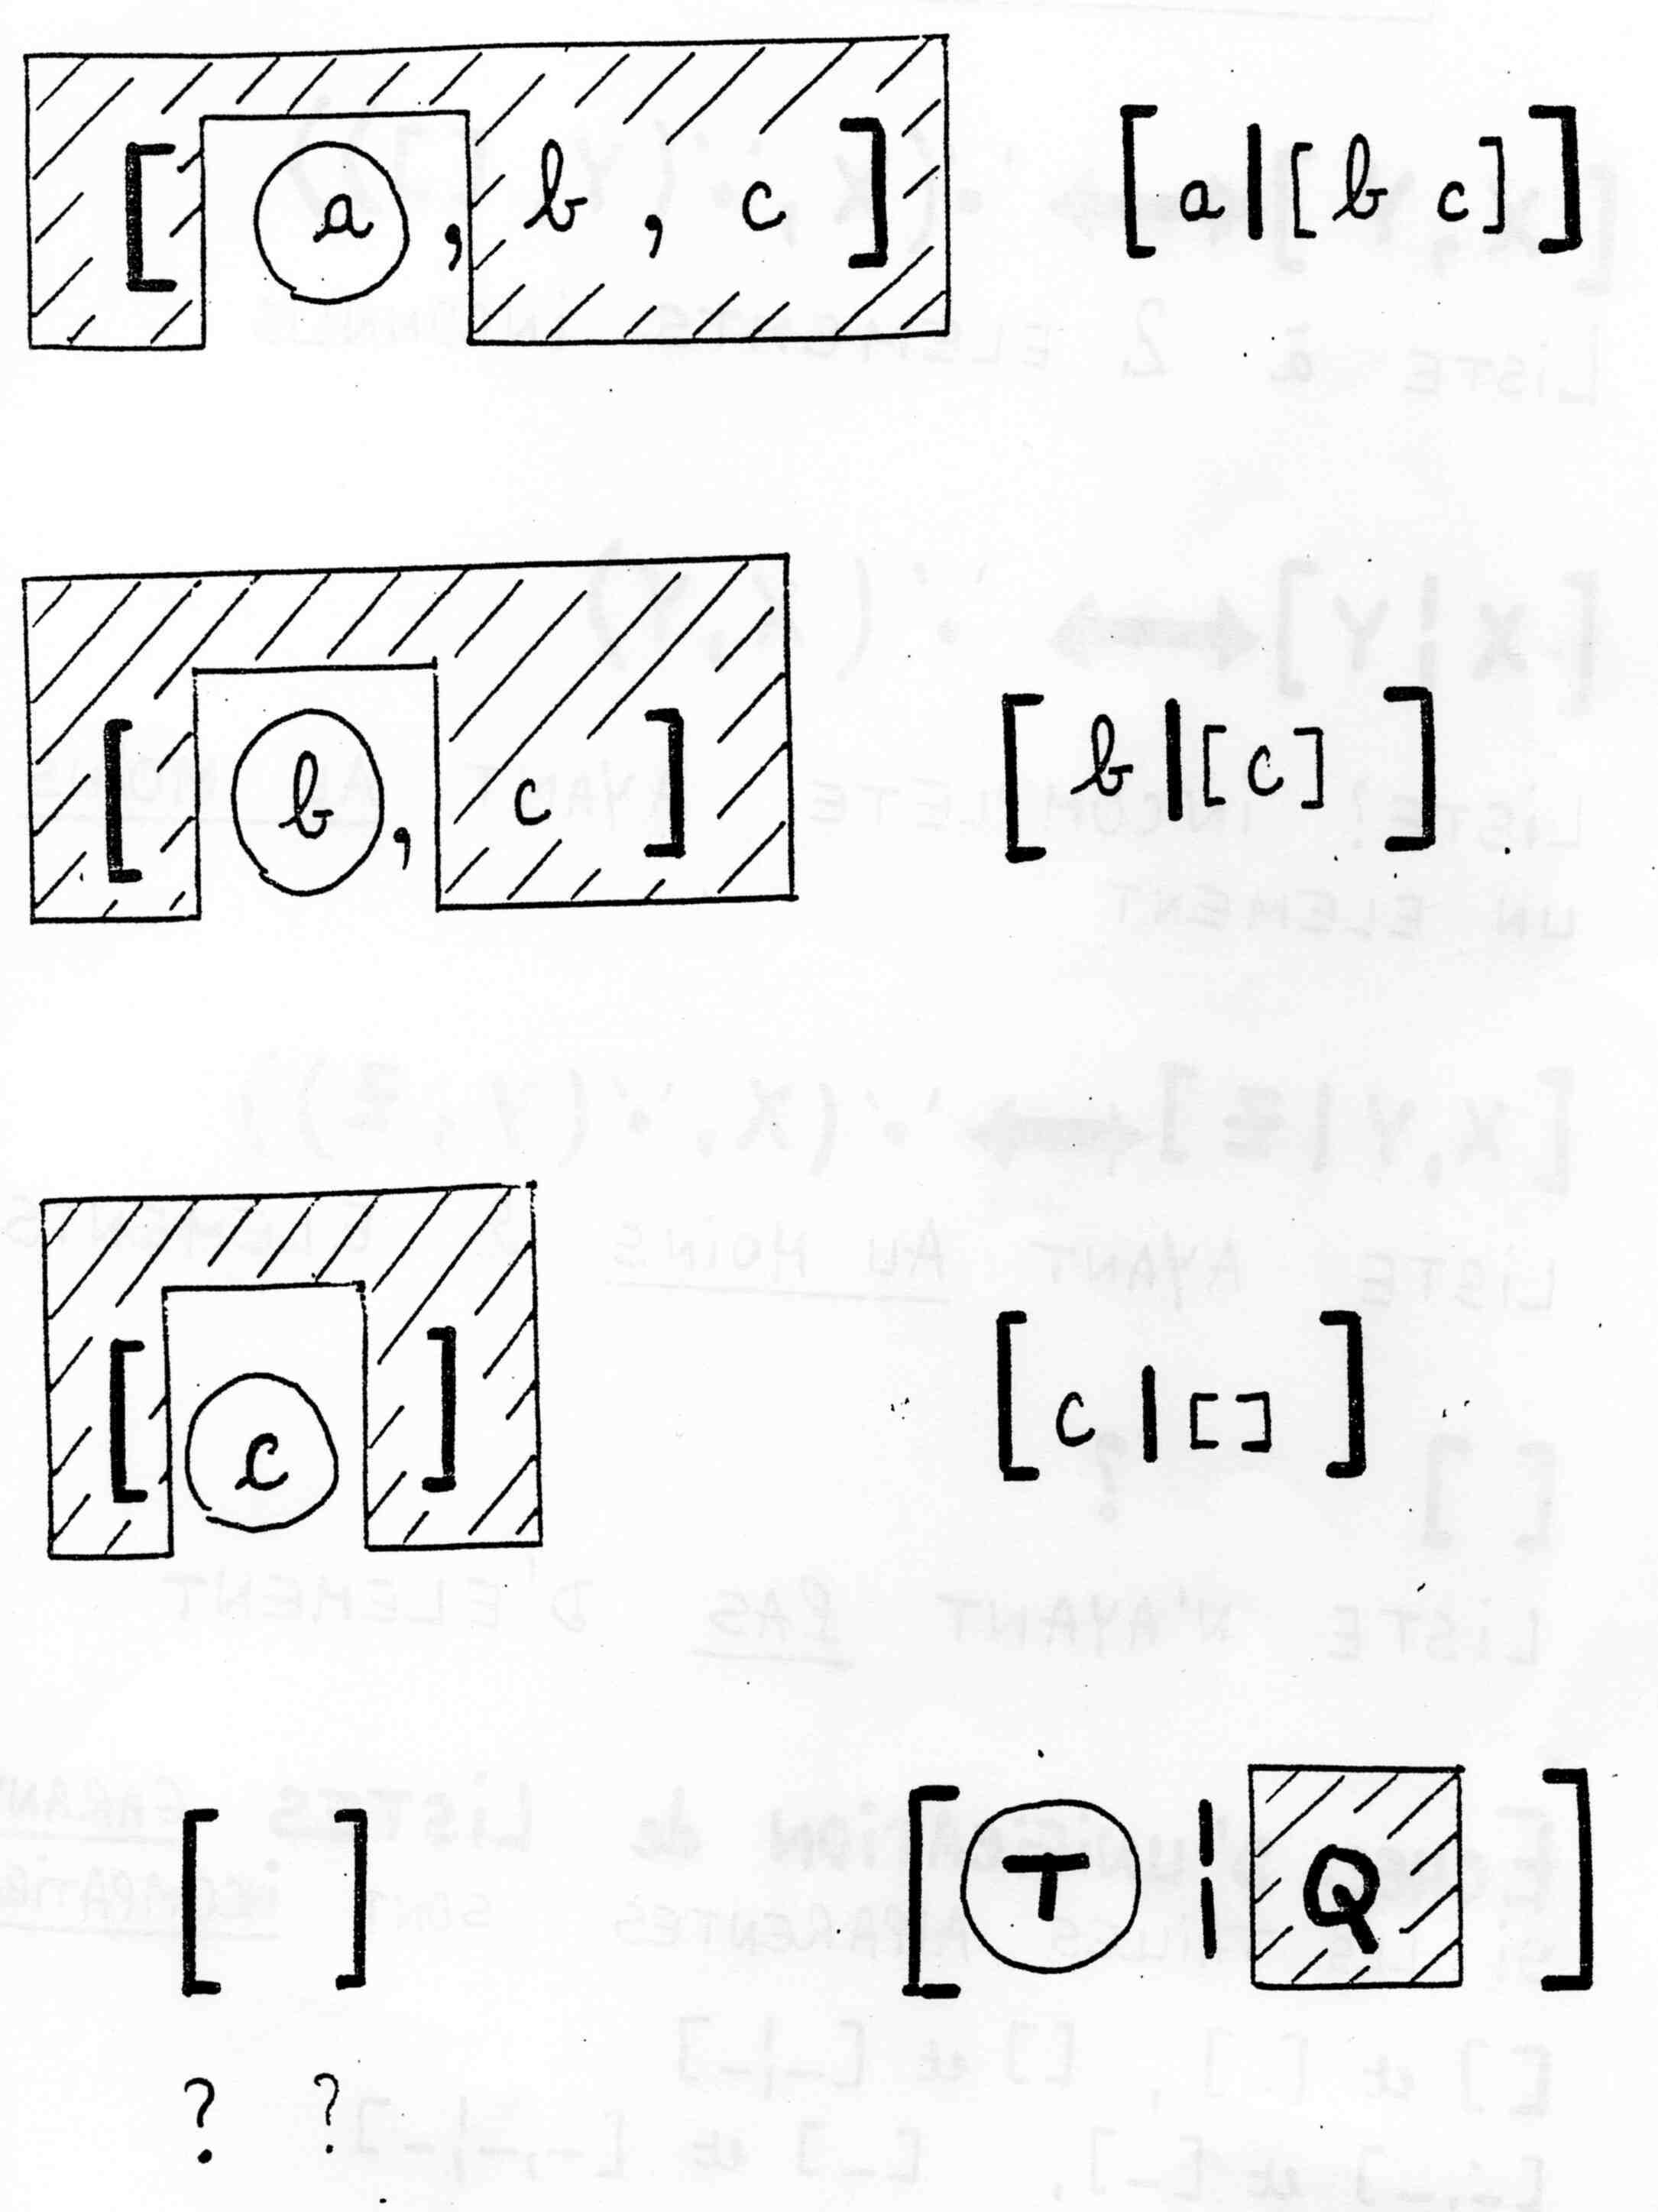 [ a , b , c ] [ a | [ b c ] ]
[ b , c ] [ b | [ c ] ]
[ c ] [ c | [ ] ]
[ ] [ T | Q ]
? ?